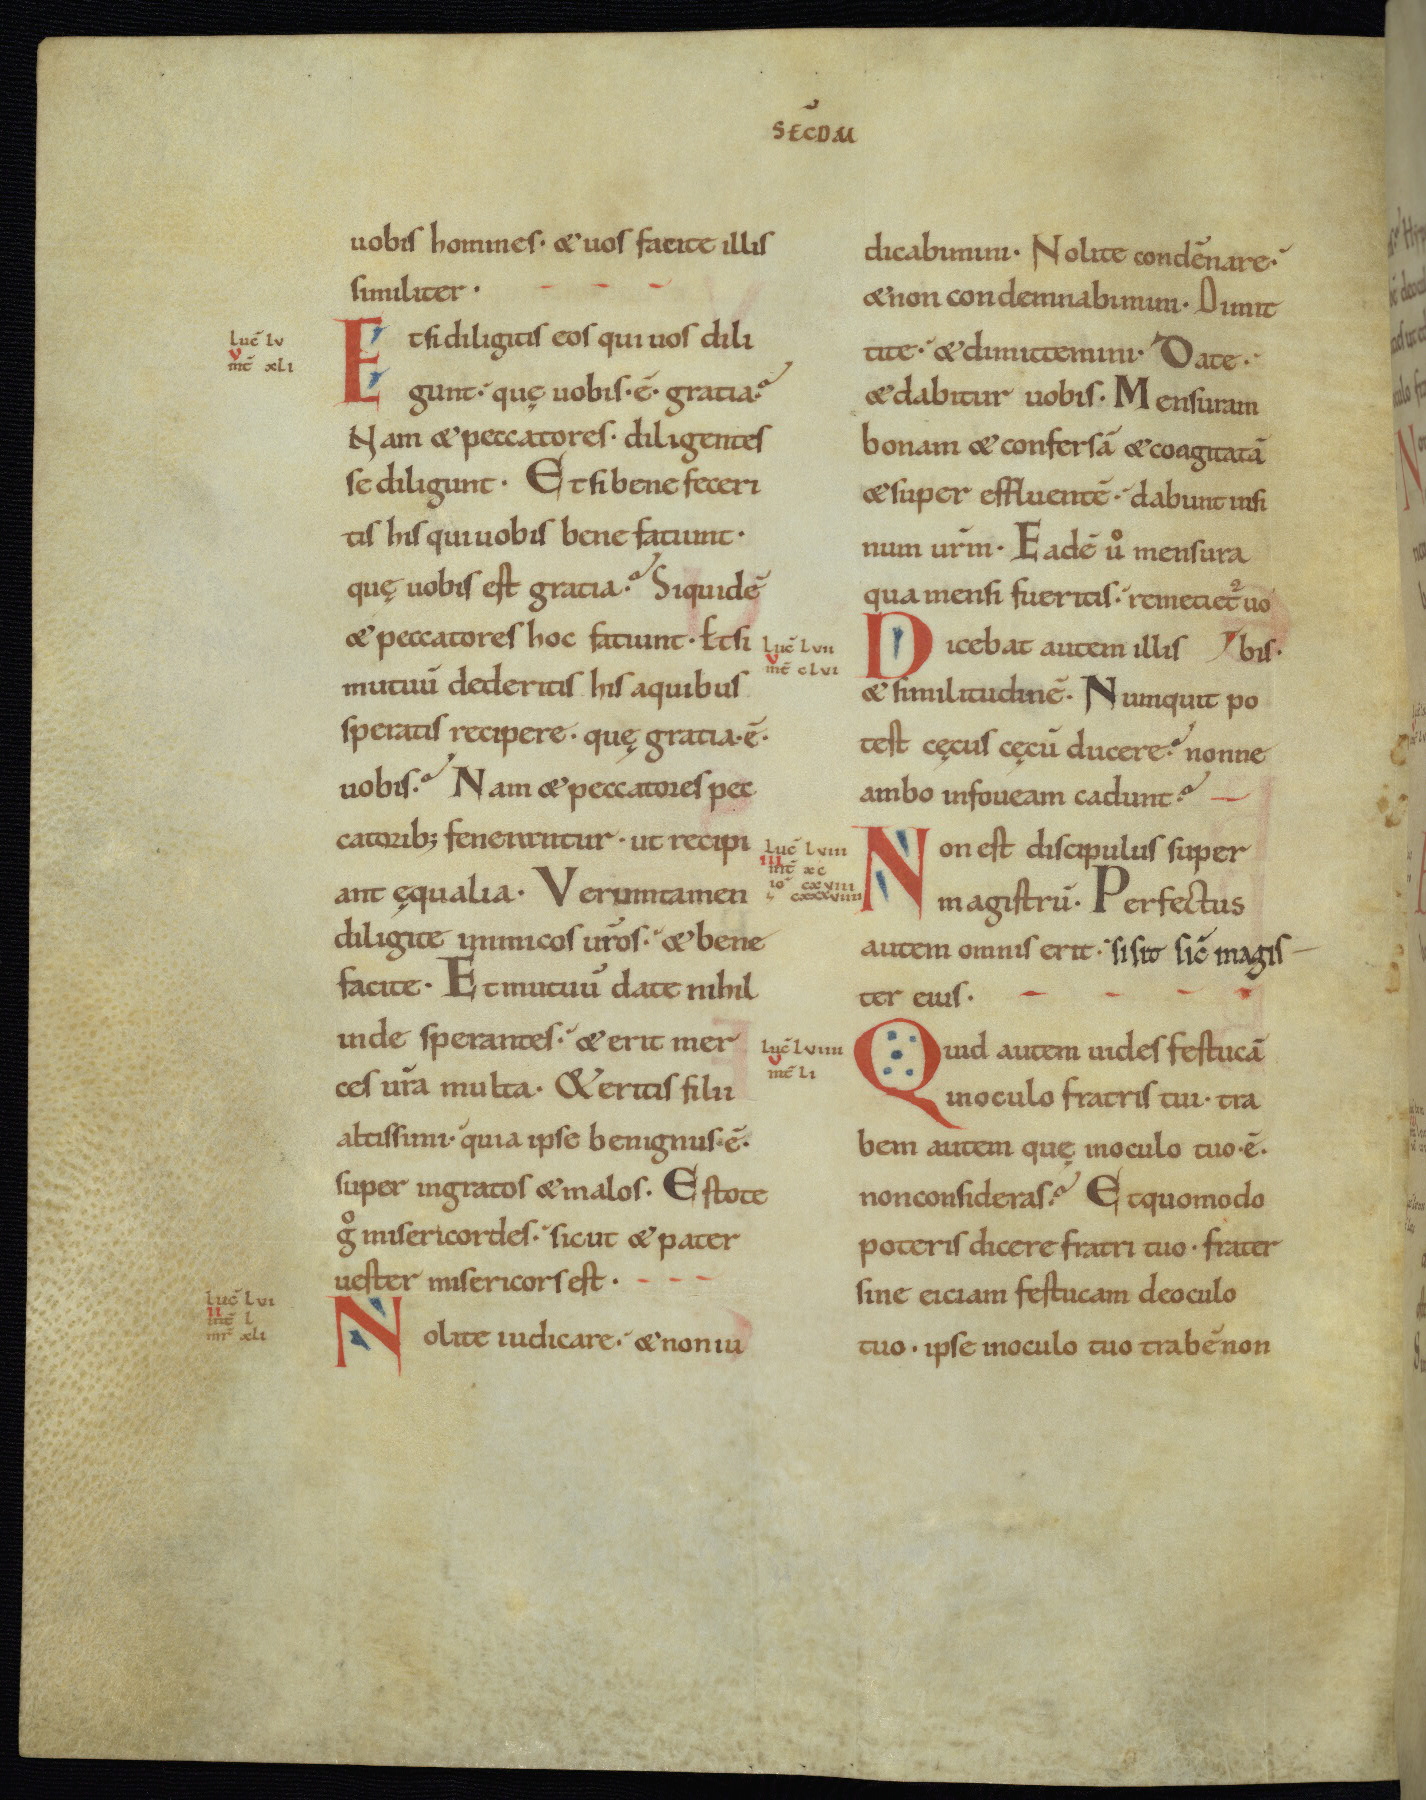 SECDM̄
uobis homines· & uos facite illis
similiter·
Luc̄ Lv
v
mt̄ xLi
Et si diligitis eos qui uos dili
gunt· quę uobis·ē· gratia?
Nam & peccatores· diligentes
se diligunt· Et si bene feceri
tis his qui uobis bene fatiunt·
quę uobis est gratia? Siquidē
& peccatores hoc fatiunt· Et si
mutuū dederitis his a quibus
speratis recipere· quę gratia·ē·
uobis? Nam & peccatores pec
catorib; fenerentur· ut recipi
ant ęqualia· Veruntamen
diligite inimicos ur̄os· & bene
facite· Et mutuū date nihil
inde sperantes· & erit mer
ces ur̄a multa· & eritis filii
altissimi· quia ipse benignus·ē·
super ingratos & malos· Estote
g̊ misericordes· sicut & pater
uester misericors est·
Luc̄ Lvi
ii
mt̄ L
mr̄ xLi
Nolite iudicare· & non iu
dicabimini· Nolite condēnare·
& non condemnabimini· Dimit
tite· & dimittemini· Date·
& dabitur uobis· Mensuram
bonam & confersā & coagitatā
& super effluentē· dabunt in si
num ur̄m· Eadē ů mensura
qua mensi fueritis· remetiet² uo
bis·
Luc̄ Lvii
v
mt̄ cLvi
Dicebat autem illis
& similitudinē· Numquit po
test cęcus cęcū ducere? nonne
ambo in foueam cadunt?
Luc̄ Lviii
iii
mt̄ xc
io cxviii
cxxxviiii
Non est discipulus super
magistrū· Perfectus
autem omnis erit· si sit sic̄ magis
ter eius·
Luc̄ Lviiii
v
mt̄ Li
Quid autem uides festucā
in oculo fratris tui· tra
bem autem quę in oculo tuo·ē·
non consideras? Et quomodo
poteris dicere fratri tuo· frater
sine eiciam festucam de oculo
tuo· ipse in oculo tuo trabē non